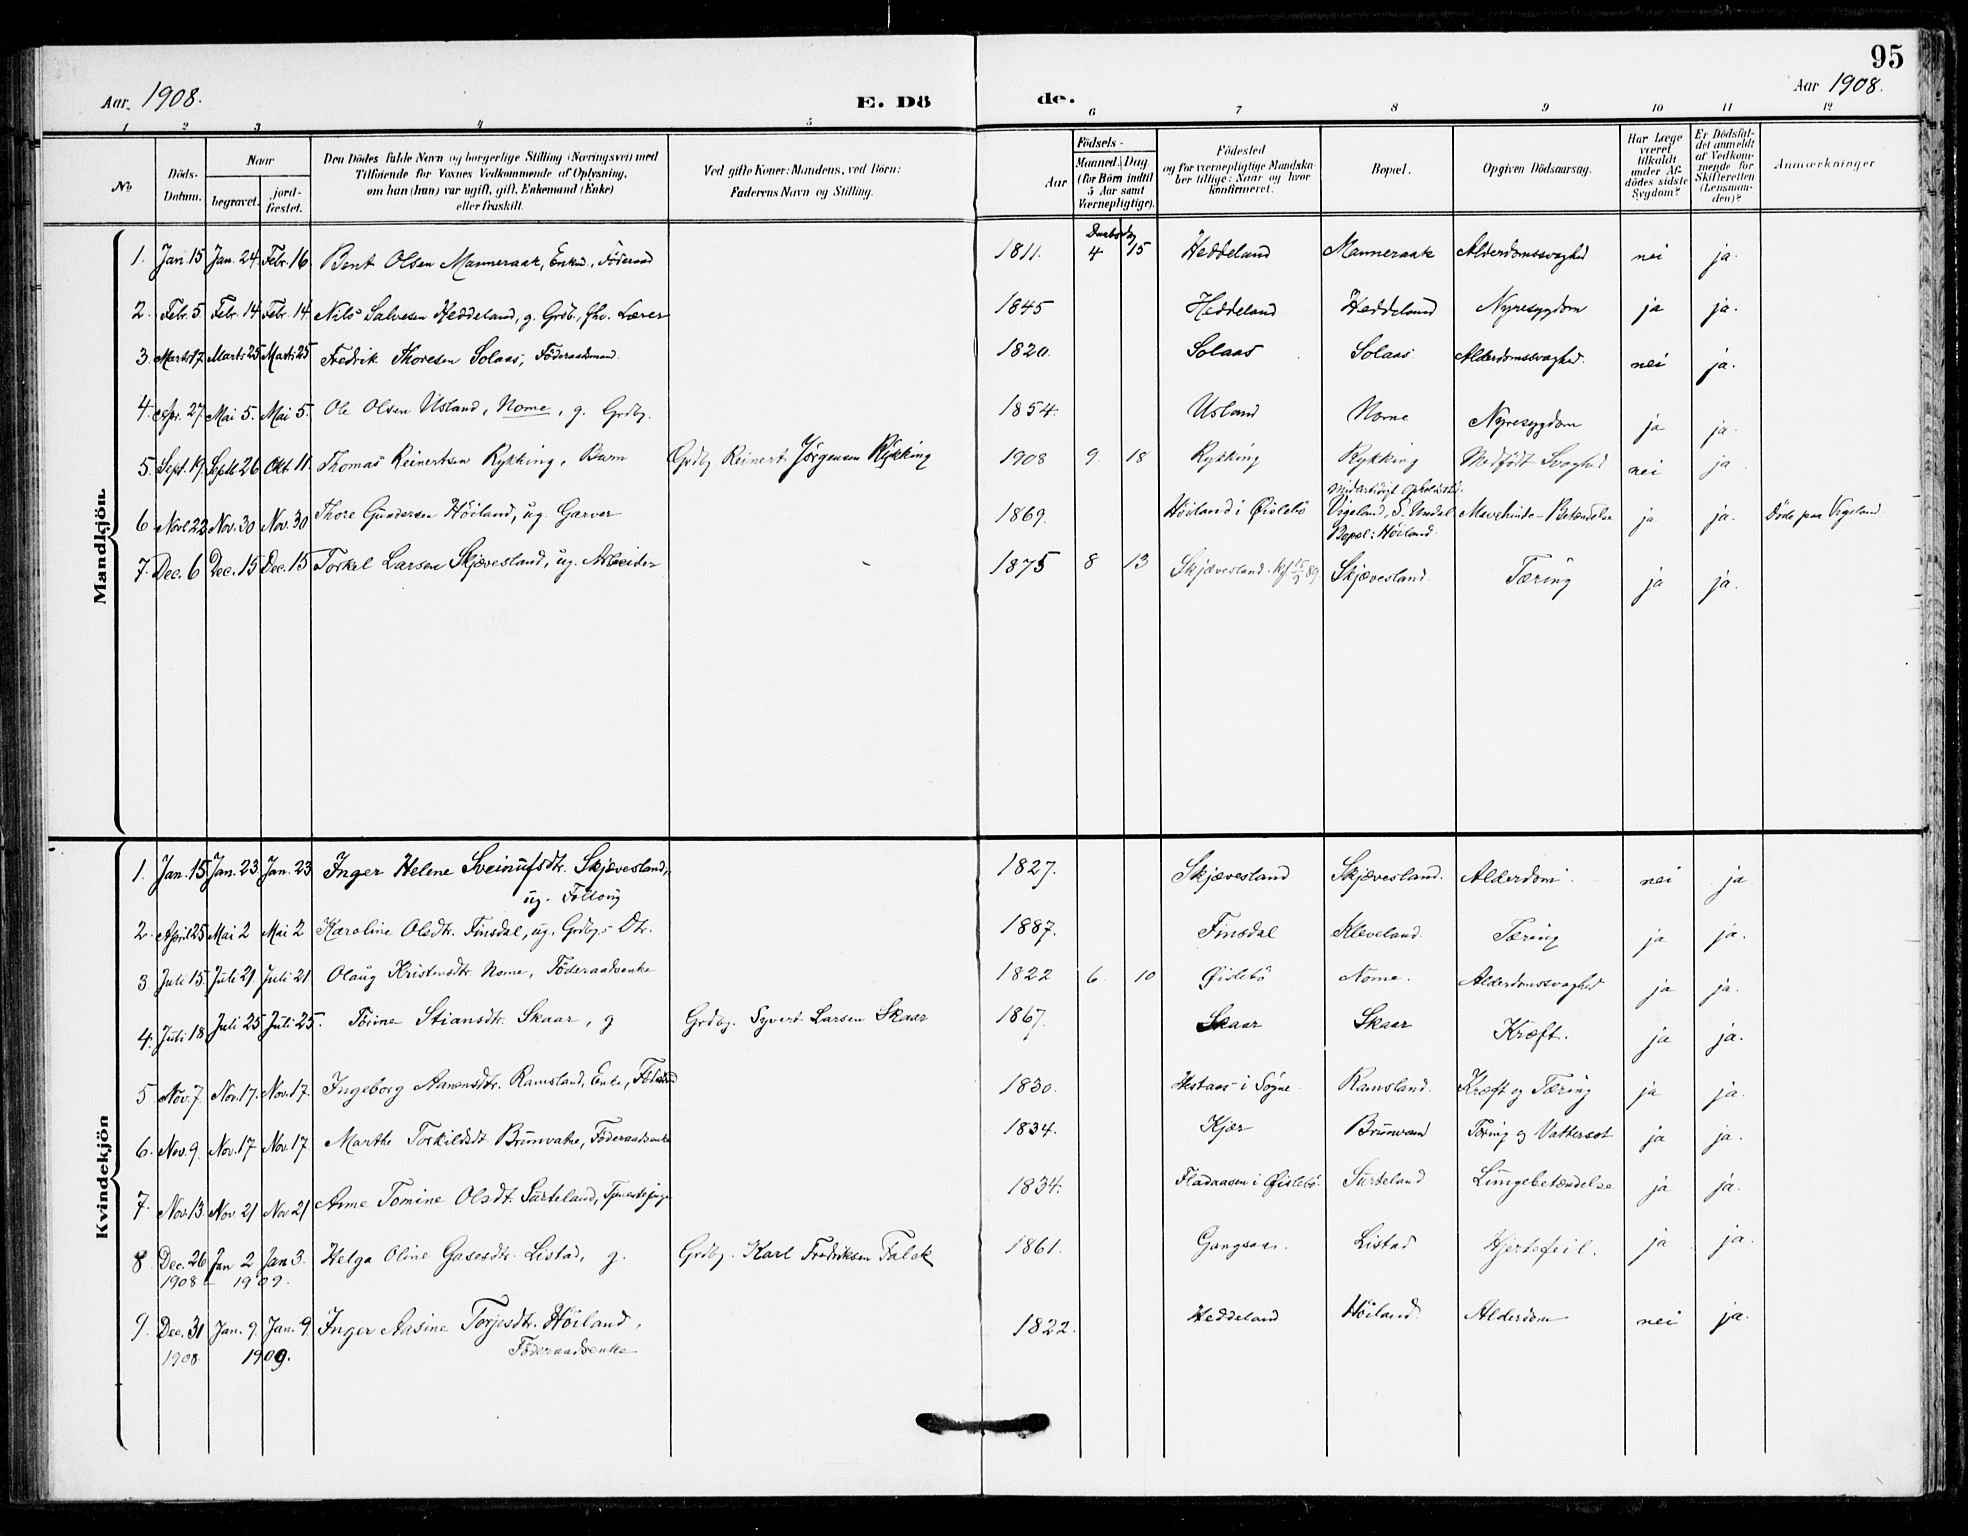 95
Aar 1908.
E. Dö
de.
Aar 1908.
1 2 3 4 5 6 7 8 9 10 11 12
No
Döds-
Datum.
Naar
begravet.
jord-
fæstet.
Den Dödes fulde Navn og borgerlige Stilling (Næringsvei) med
Tilföiende for Voxnes Vedkommende af Oplysning,
om han (hun) var ugift, gift, Enkemand (Enke)
eller fraskilt.
Ved gifte Koner: Mandens, ved Börn:
Faderens Navn og Stilling.
Födsels-
Aar
Maaned. Dag.
(for Börn indtil
5 Aar samt
Værnepligtige).
Födested
og for værnepligtige Mandska-
ber tillige: Naar og hvor
konfirmeret.
Bopæl.
Opgiven Dödsaarsag.
Har Læge
været
tilkaldt
under Af-
dödes sidste
Sygdom?
Er Dödsfal-
det anmeldt
af Vedkom-
mende for
Skifteretten
(Lensman-
den)?
Anmærkninger
Mandkjön.
Daabsdag
1. Jan. 15 Jan. 24 Febr. 16 Bent Olsen Manneraak, Enkm., Föderaad 1811. 4 15 Heddeland Manneraak Alderdomssvaghed nei ja.
2. Febr. 5 Febr. 14 Febr. 14 Nils Salvesen Heddeland, g. Grdb., fhv. Lærer 1845 Heddeland Heddeland Nyresygdom ja ja.
3. Marts 17 Marts 25 Marts 25 Fredrik Thoresen Solaas, Föderaadsmand. 1820. Solaas Solaas Alderdomssvaghed. nei ja.
4. Apr. 27 Mai 5. Mai 5. Ole Olsen Usland, Nome, g. Grdbg. 1854. Usland Nome Nyresygdom ja ja.
5. Sept. 19 Septb 26 Okt 11. Thomas Reinertsen Rykking, Barn Grdbg. Reinert Jørgensen Rykking 1908 9. 18 Rykking Rykking Medfödt Svaghed nei ja
6 Novb 22 Nov. 30 Nov. 30 Thore Gundersen Höiland, ug. Garver 1869. Höiland i Øislebö
Midlertidigt Opholdssted.
Vigeland, S. Undal
Bopæl: Höiland.
Mavehinde-Betændelse ja ja. Döde paa Vigeland.
7. Dec. 6 Dec. 15 Dec. 15 Torkel Larsen Skjævesland, ug. Arbeider 1875 8 13 Skjævesland. Kf 15/9 89 Skjævesland. Tæring ja ja.
Kvindekjön
1. Jan. 15 Jan. 23 Jan. 23 Inger Helene Sveinufsdtr. Skjævesland, 1827. Skjævesland Skjævesland. Alderdom. nei ja
ug.
2. April 25 Mai 2 Mai 2 Karoline Olsdtr. Finsdal, ug. Grdbgs Dtr. 1887. Finsdal Kleveland. Tæring ja ja.
3 Juli 15 Juli 21. Juli 21 Olaug Kristensdtr. Nome, Föderaadsenke 1822 6. 10 Øislebö Nome. Alderdomssvaghed ja ja.
4. Juli 18 Juli 25 Juli 25. Tomine Stiansdtr. Skaar, g Grdbg. Syvert Larsen Skaar 1867. Skaar Skaar Kræft. ja ja.
5 Nov. 7. Nov. 17. Nov. 17. Ingeborg Aanensdtr. Ramsland, Enke, 1830. i Søgne. Ramsland. Kræft og Tæring ja ja.
6. Nov. 9. Nov. 17 Nov. 17 Marthe Torkildsdt. Brunvatne, Föderaadsenke 1834. Kjær Brunvand Tæring og Vattersot ja ja.
7. Nov. 13. Nov. 21 Nov 21 Anne Tomine Olsdt. Surteland, 1834. Fladaasen i Øislebö. Surteland Lungebetændelse ja ja.
8 Dec. 26 Jan 2 Jan 3. Helga Oline Gasesdtr. Listad, g. Grdbg. Karl Fredriksen Falck 1861. Gangsaas. Listad Hjertefeil. ja ja.
1908 - 1909.
9. Dec. 31 Jan. 9. Jan. 9. Inger Aasine Torjesdtr. Höiland, 1822. Heddeland Höiland. Alderdom nei ja.
1908. 1909. Föderaadsenke